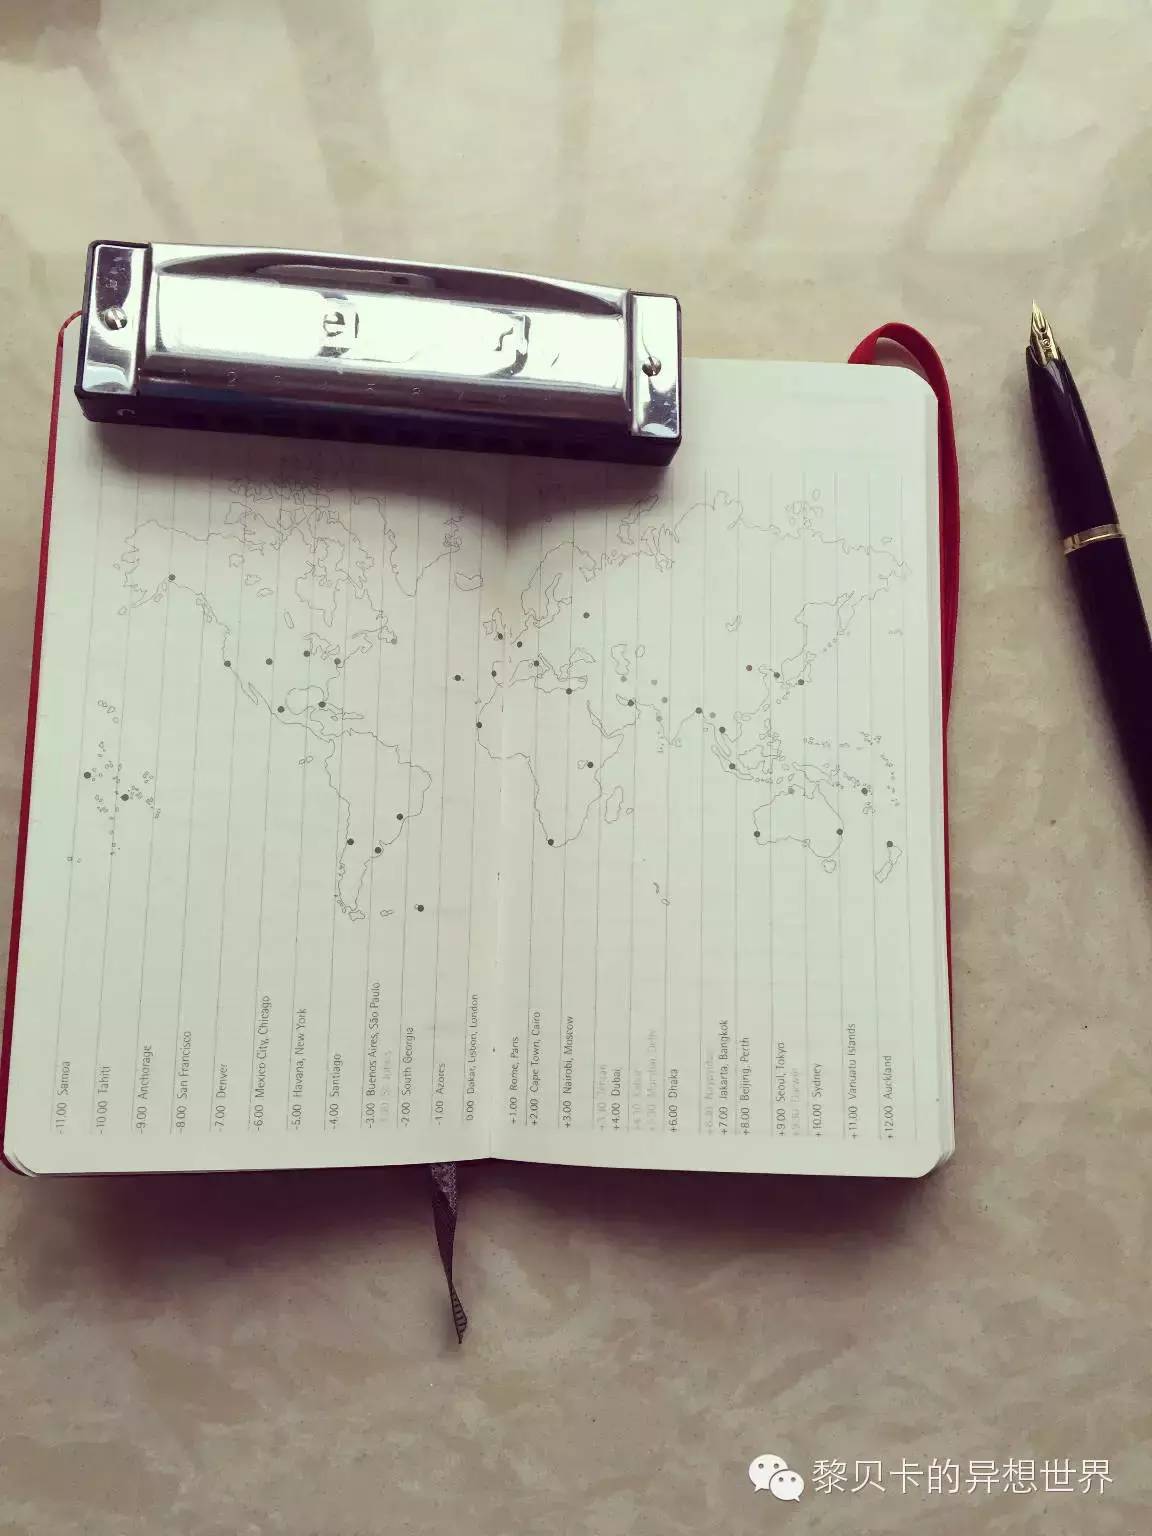 C
1 2 3 4 5 6 7
-11.00 Samoa
-10.00 Tahiti
-9.00 Anchorage
-8.00 San Francisco
-7.00 Denver
-6.00 Mexico City, Chicago
-5.00 Havana, New York
-4.00 Santiago
-3.00 Buenos Aires, São Paulo
-2.00 South Georgia
-1.00 Azores
0.00 Dakar, Lisbon, London
+1.00 Rome, Paris
+2.00 Cape Town, Cairo
+3.00 Nairobi, Moscow
+4.00 Dubai
+6.00 Dhaka
+7.00 Jakarta, Bangkok
+8.00 Beijing, Perth
+9.00 Seoul, Tokyo
+9.30 Darwin
+10.00 Sydney
+11.00 Vanuatu Islands
+12.00 Auckland
黎贝卡的异想世界